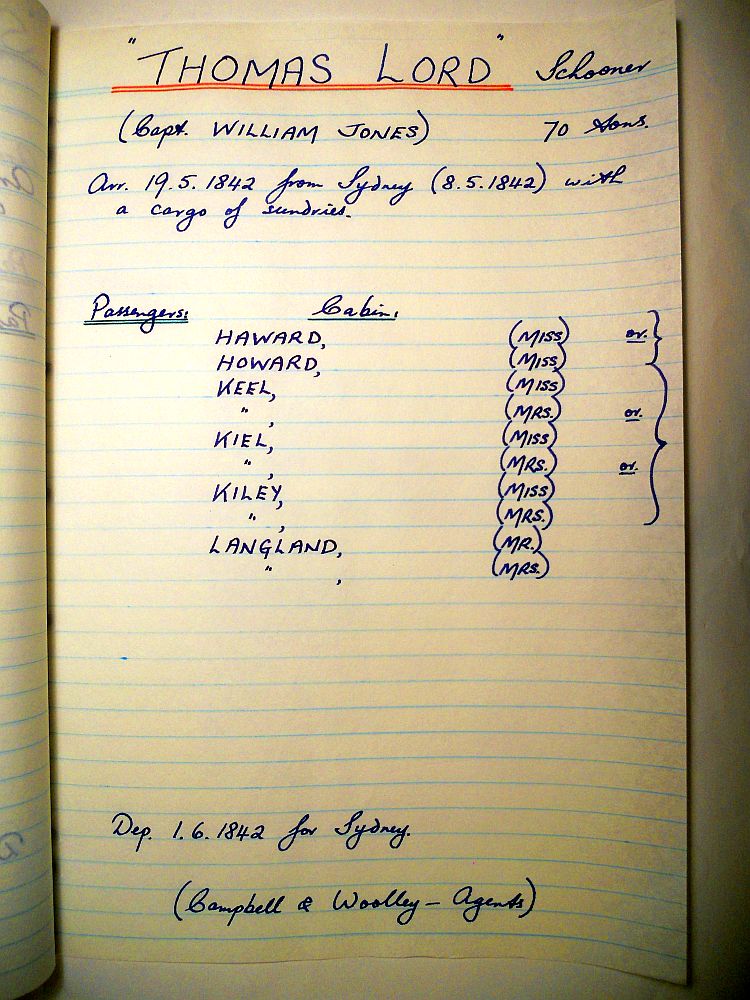 "THOMAS LORD" Schooner
(Capt. WILLIAM JONES) 70 tons.
Arr. 19.5.1842 from Sydney (8.5.1842) with
a cargo of sundries.
Passengers: Cabin:
HAWARD, (MISS) or.
HOWARD, (MISS)
KEEL, (MISS)
" , (MRS.) or.
KIEL, (MISS)
" , (MRS.) or.
KILEY, (MISS)
" , (MRS.)
LANGLAND, (MR.)
" , (MRS.)
Dep. 1.6.1842 for Sydney.
(Campbell & Woolley - Agents)